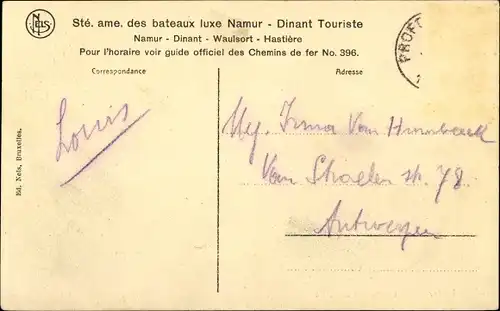 NELS
Sté. ame. des bateaux luxe Namur - Dinant Touriste
Namur - Dinant - Waulsort - Hastière
Pour l'horaire voir guide officiel des Chemins de fer No. 396.
Correspondance
Adresse
PROF
Louis
Irma Van
Van str. 78
Antwerpen
Ed. Nels, Bruxelles.